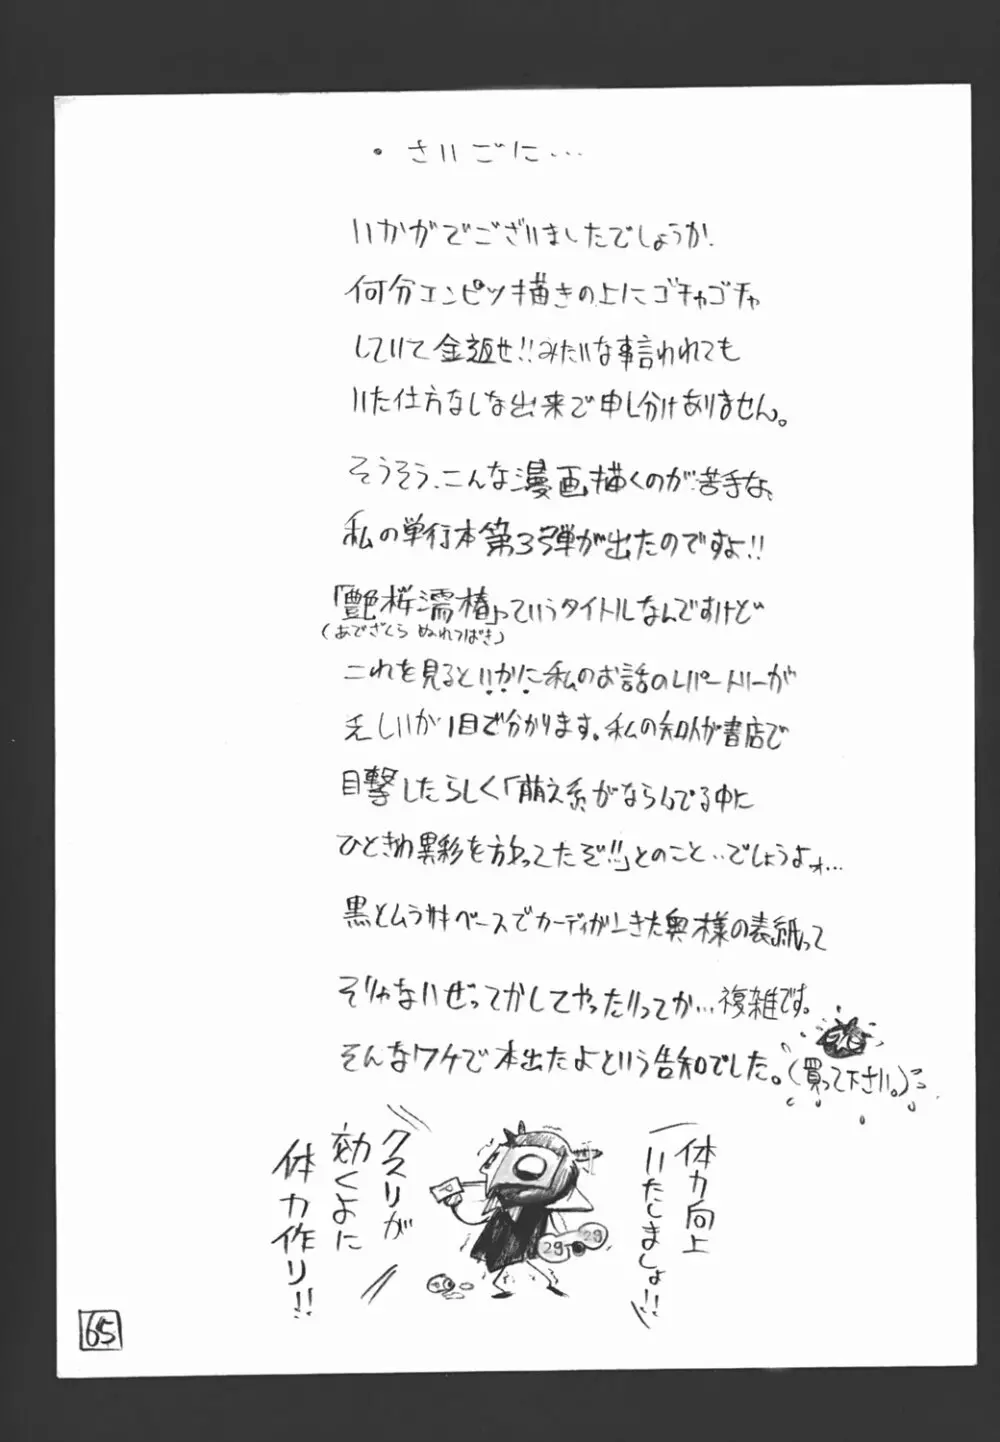 ・さいごに…
いかがでございましたでしょうか.
何分エンピツ描きの上にゴチャゴチャ
していて金返せ!!みたいな事言われても
いた仕方なしな出来で申し分けありません。
そうそう、こんな漫画描くのが苦手な、
私の単行本第3弾が出たのですよ!!
「艶桜濡椿」っていうタイトルなんですけど
(あでざくら ぬれつばき)
これを見るといかに私のお話のレパートリーが
乏しいか1目で分かります。私の知人が書店で
目撃したらしく「萌え系がならんでる中に
ひときわ異彩を放ってたぞ!!」とのこと‥でしょうよォ…
黒とムラサキベースでカーディガンきた奥様の表紙って
そりゃないぜってかしてやったりってか…複雑です。
そんなワケで本出たよという告知でした。(買って下さい。)
体力向上
いたしましょ!!
クスリが
効くように
体力作り!!
29 29
65